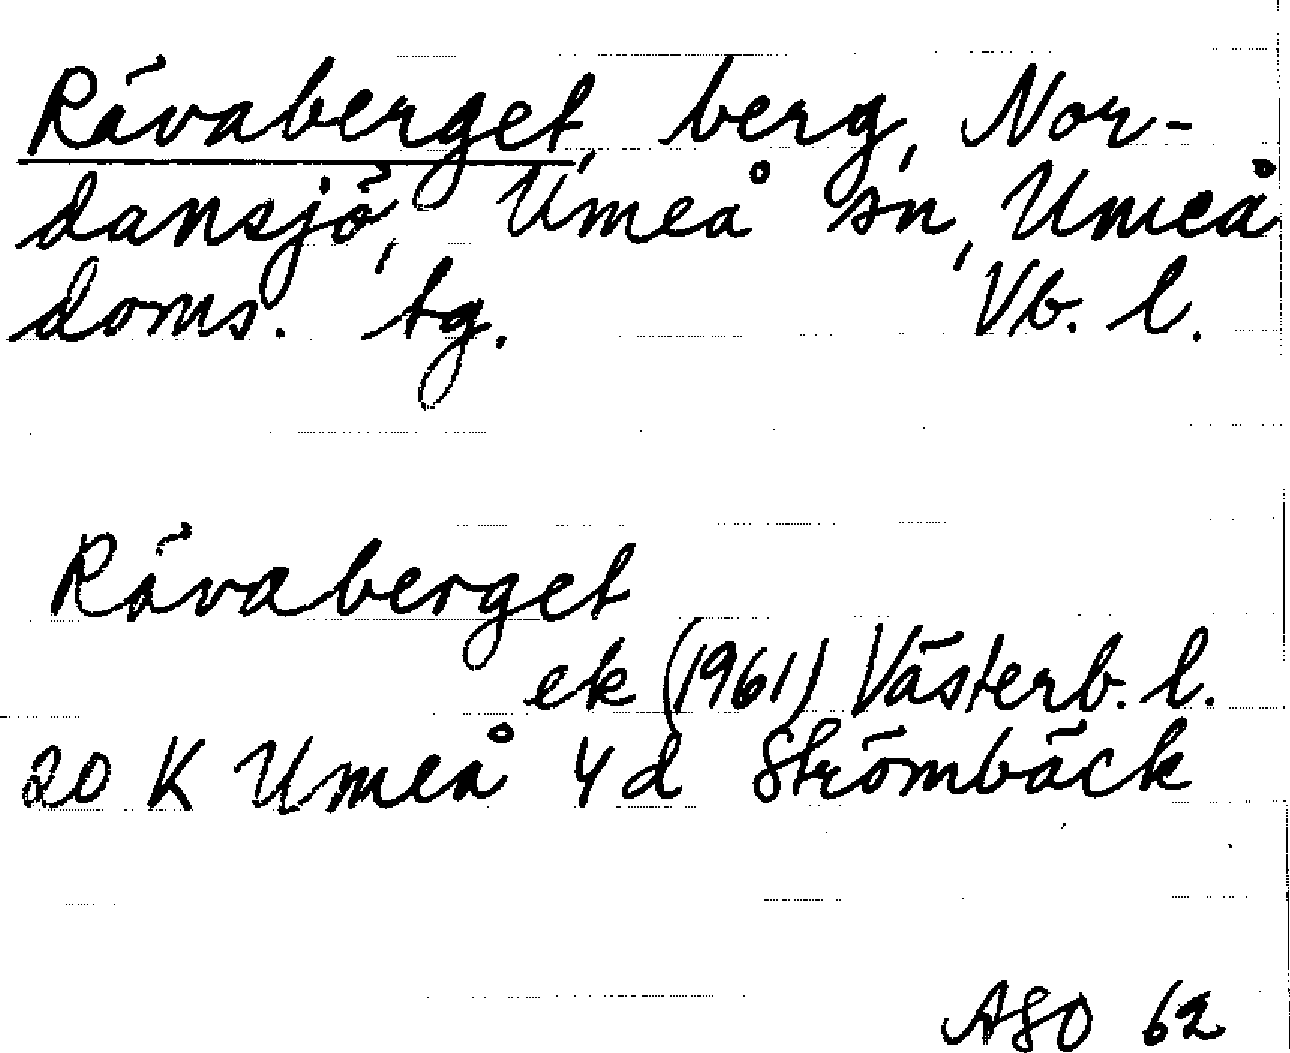 Rävaberget, berg, Nor-
dansjö, Umeå sn, Umeå
doms. tg. Vb. l.
Rävaberget
ek (1961) Västerb. l.
20 K Umeå 4 d Strömbäck
ASO 62